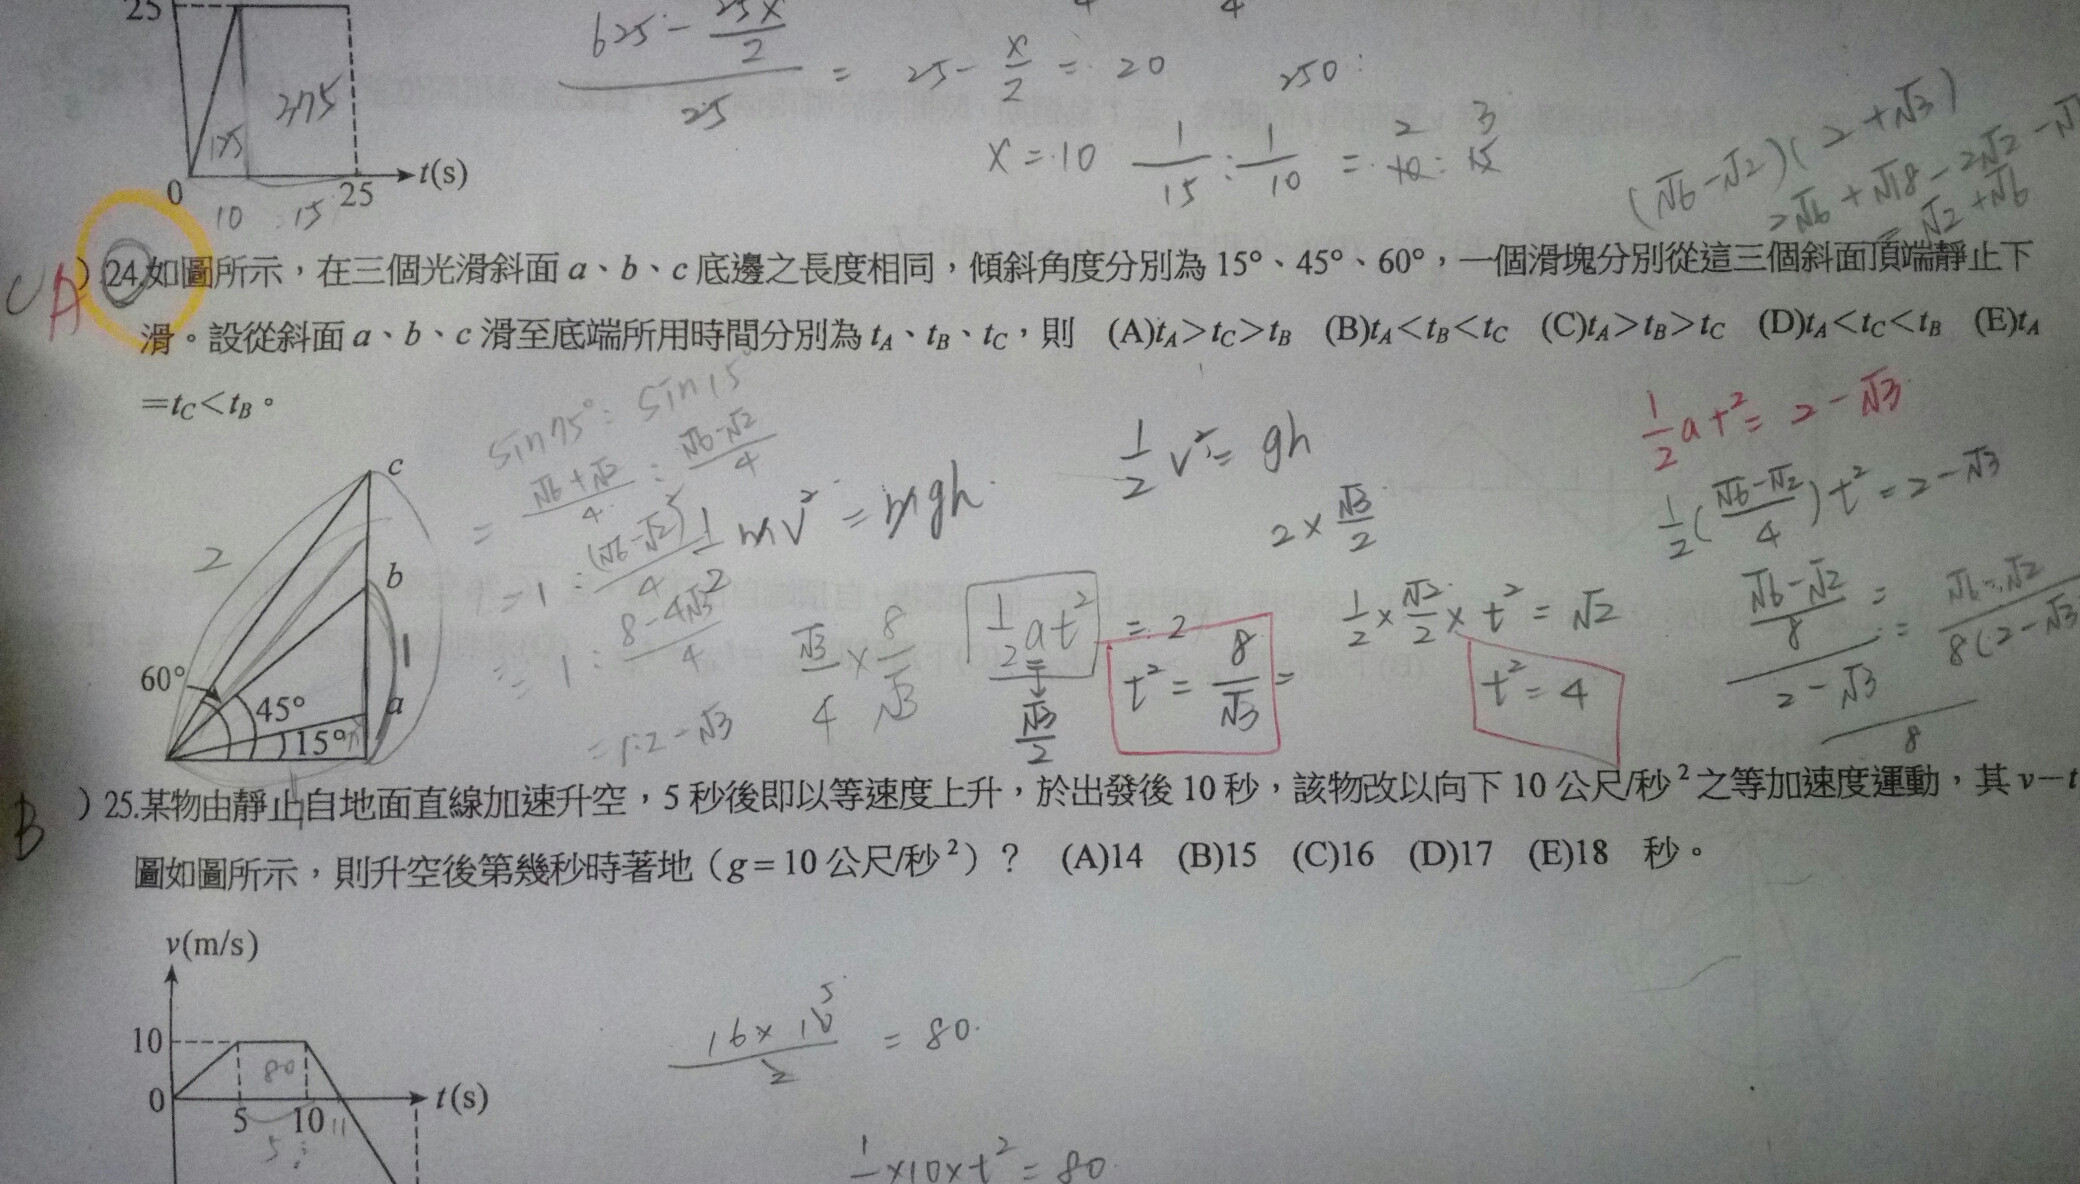 25
375
125
0
10
15
25
t(s)
625 - 25x/2
25
= 25 - x/2 = 20
x = 10
250
1/15 : 1/10 = 2/10 : 3/15
(√6-√2)(2+√3)
2√6+√18-2√2-√
=√2+√6
C
A
)24.如圖所示，在三個光滑斜面 a、b、c 底邊之長度相同，傾斜角度分別為 15°、45°、60°，一個滑塊分別從這三個斜面頂端靜止下
滑。設從斜面 a、b、c 滑至底端所用時間分別為 tA、tB、tC，則 (A)tA>tC>tB (B)tA<tB<tC (C)tA>tB>tC (D)tA<tC<tB (E)tA
=tC<tB。
c
b
a
2
1
60°
45°
15°
sin75° : sin15°
= (√6+√2)/4 : (√6-√2)/4
= 1 : (√6-√2)²/4
= 1 : (8-4√3)/4
= 1:2-√3
1/2 mv² = mgh
1/2 v² = gh
2×√3/2
√3/4 × 8/√3
1/2 at² = 2
√3/2
t² = 8/√3 =
1/2 × √2/2 × t² = √2
t² = 4
1/2 at² = 2-√3
1/2 ((√6-√2)/4) t² = 2-√3
(√6-√2)/8
2-√3
8
= (√6-√2)/8(2-√3
B
)25.某物由靜止自地面直線加速升空，5 秒後即以等速度上升，於出發後 10 秒，該物改以向下 10 公尺/秒² 之等加速度運動，其 v－t
圖如圖所示，則升空後第幾秒時著地（g＝10 公尺/秒²）？ (A)14 (B)15 (C)16 (D)17 (E)18 秒。
v(m/s)
10
80
0
5
10
11
t(s)
5
16×10/2 = 80
5
×10×t² = 80